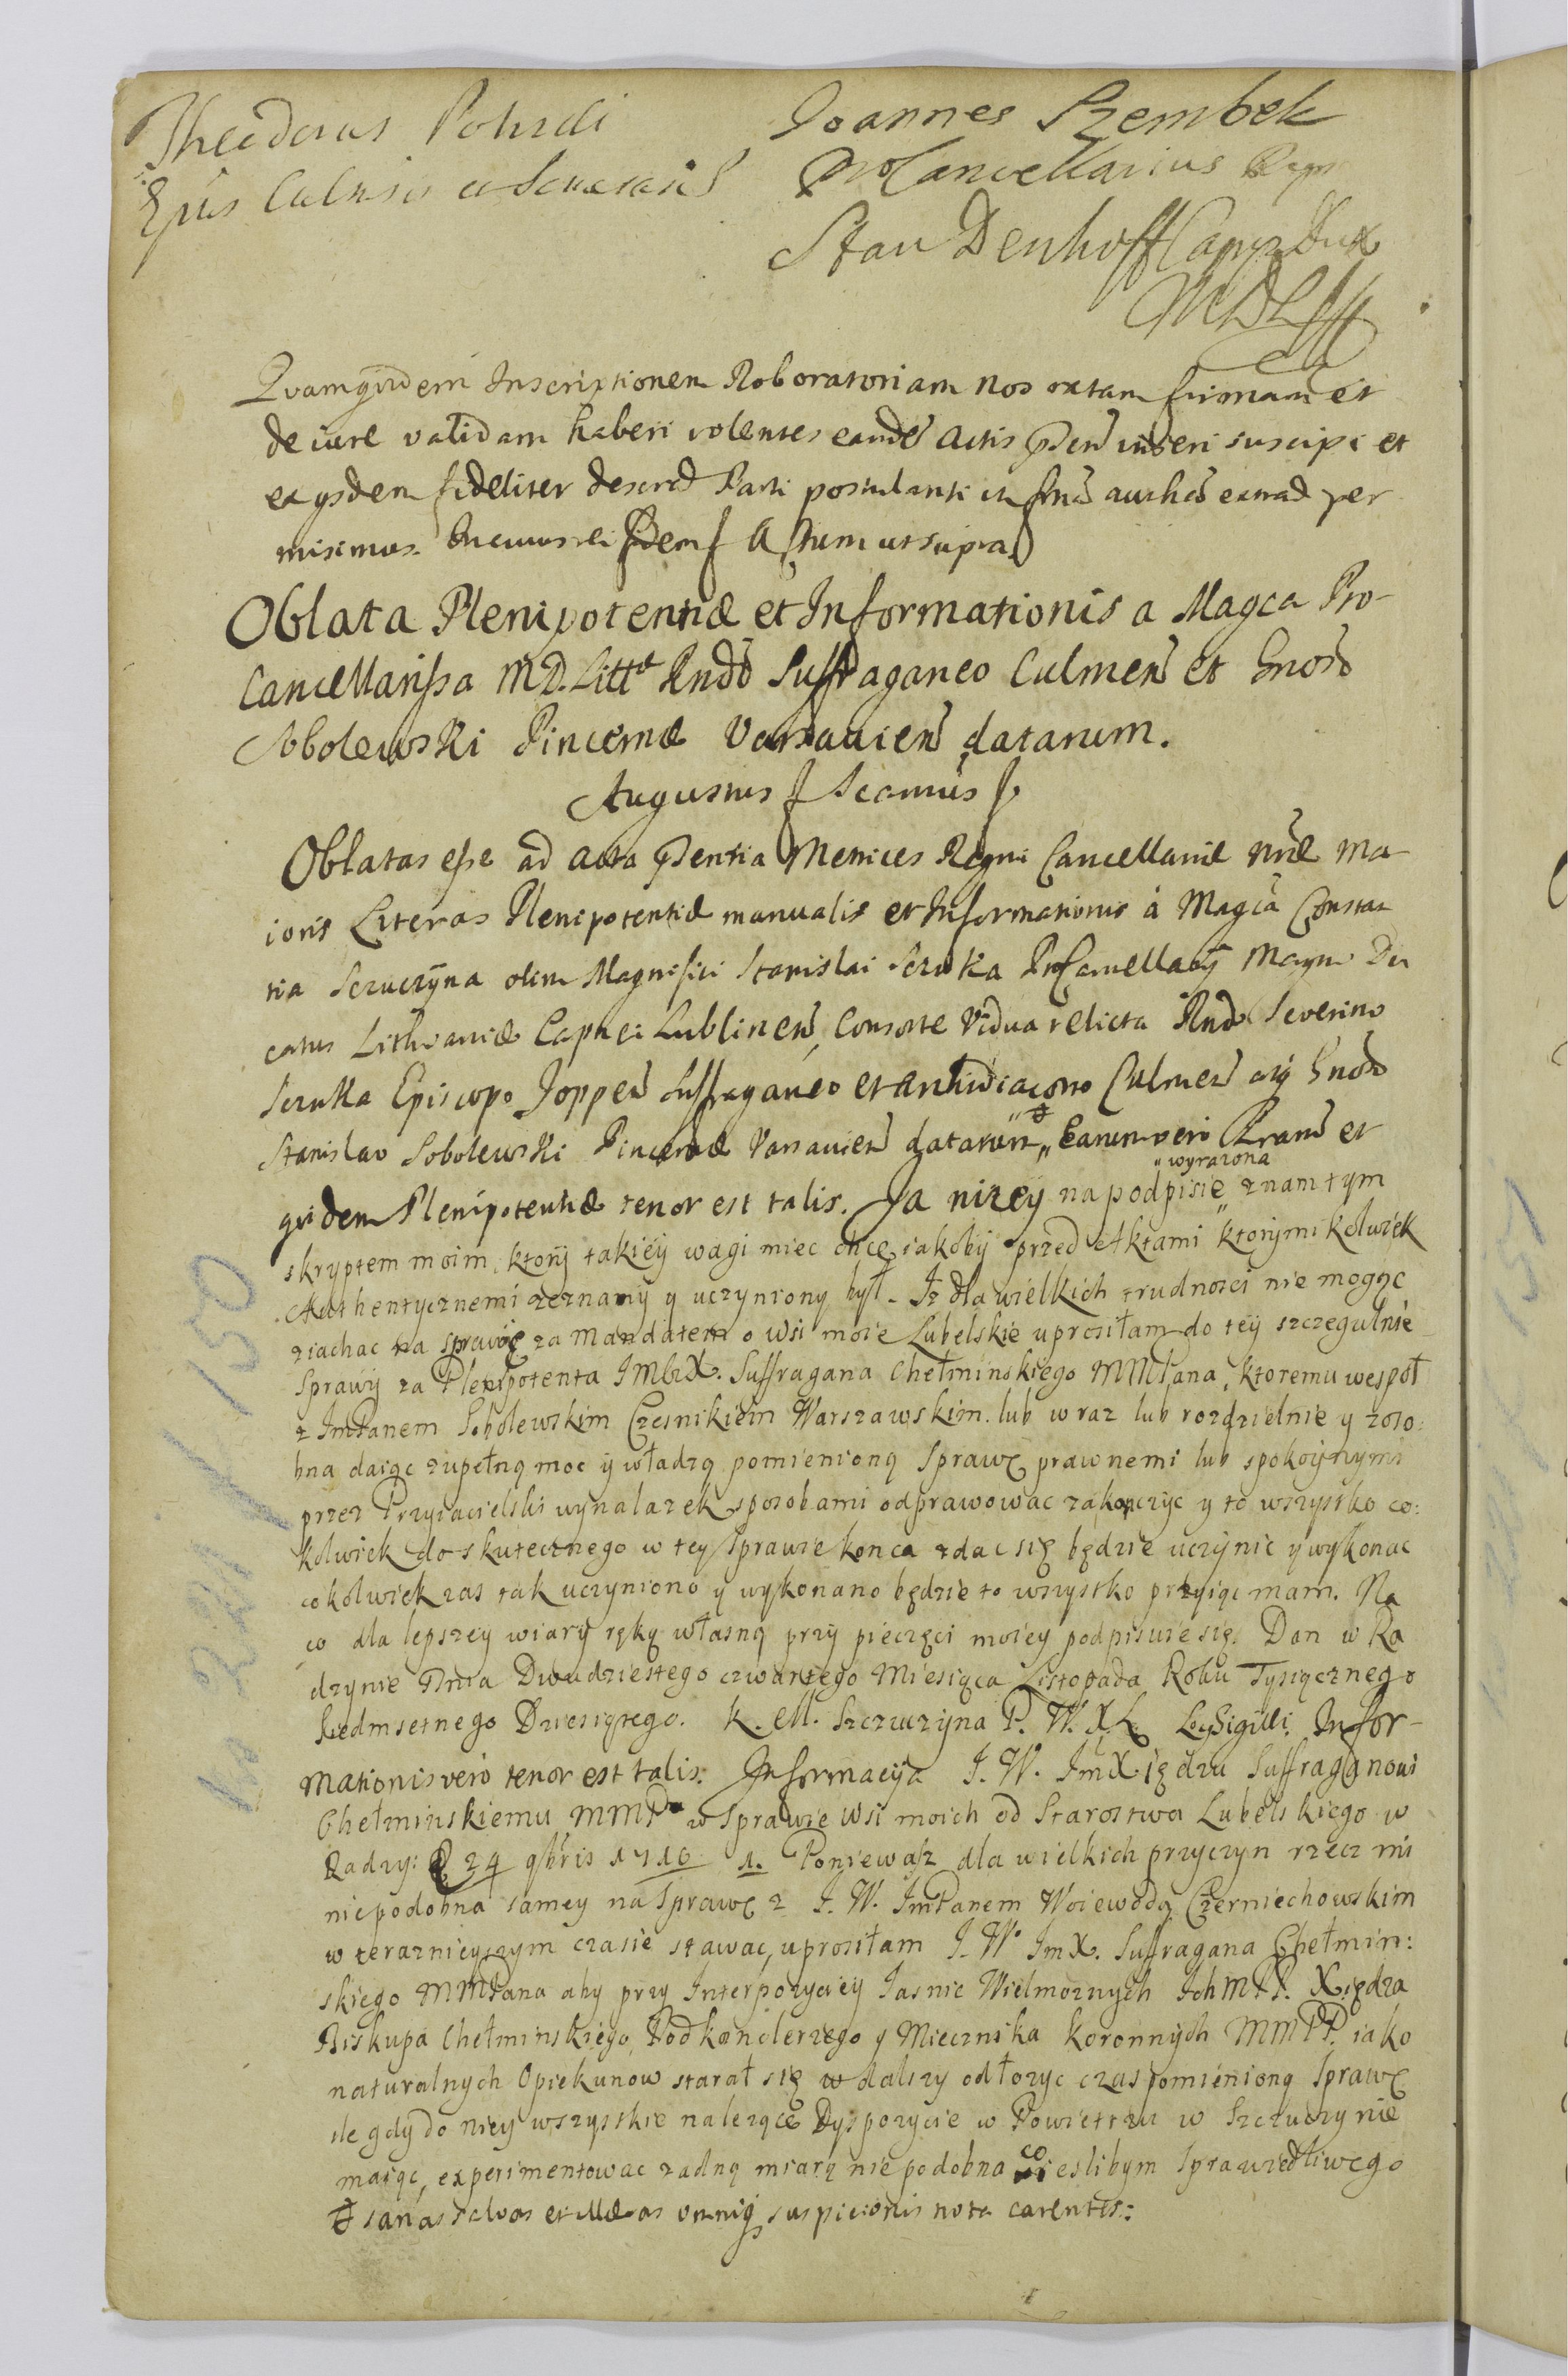 Theodorus Potucki
Epus Culmsis et
Joannes Szembek
ProCancellarius Regni
Stan Denhoff Camp Dux
MDL
Quamquidem Inscriptionem Roboratoriam nos ratam firmam et
de iure validam haberi volentes eandẽ actis pñtibũ inseri suscipi et
ex ijsdem fideliter descred Parti postulanti in formã authcã extrad per
misimus. In cuius rei fidem Actum ut supra
Oblata Plenipotentiæ et Informationis a Magca Pro-
Cancellarissa M.D. Litte Rndo Suffraganeo Culmen et Gnoso
Sobolewski Pincernæ Varsavien datarum.
Augustus Scdus
Oblatas esse ad acta pñtia Metrices Regni Cancellariæ nræ ma-
ioris Literas Plenipotentiæ manualis et Informationis à Magca Constan
tia Szcuczyna olim Magnifici Stanislai Szcuka ProCancellarij Magni Du
catus Lithvaniæ Capnei Lublinen, Consorte Vidua relicta Rndo Severino
Szcuka Episcopo Joppen Suffraganeo et Archidiacono Culmen atq Gnoso
Stanislao Sobolewski Pincernæ Varsavien datarum ,, Earum vero et
quidem Plenipotentiæ tenor est talis. Ja nizey na podpisie ,,wyrazona znam tym
skryptem moim, ktory takiey wagi miec chcę iakoby przed Aktami ktorymi kolwiek
Authentycznemi zeznany y uczyniony był. Iz dla wielkich trudnosci nie mogąc
ziachac na sprawę za Mandatem o wsi moie Lubelskie uprosiłam do tey szczegulnie
Sprawy za Plenipotenta JMći X. Suffragana Chełminskiego MMPana, ktoremu wespoł
z JmPanem Sobolewskim Czesnikiem Warszawskim. lub wraz lub rozdzielnie y zoso:
bna daiąc zupełną moc y władzą pomienioną Sprawę prawnemi lub spokoynymi
przez Przyiacielski wynalazek sposobami odprawowac zakonczyc y to wszystko co:
kolwiek do skutecznego w tey Sprawie konca zdac się będzie uczynic y wykonac
cokolwiek zas tak uczyniono y wykonano będzie to wszystko przyiąc mam. Na
co dla lepszey wiary ręką własną przy pieczęci moiey podpisuie się. Dan w Ra
dzynie Dnia Dwudziestego czwartego Miesiąca Listopada Roku Tysiącznego
Siedmsetnego Dziesiątego. K. M. Szczuczyna P. W. X. L. Loc Sigilli. Infor-
mationis vero tenor est talis. Informacyia J. W. JmXiędzu Suffraganowi
Chełminskiemu MMPu w Sprawie Wsi moich od Starostwa Lubelskiego w
Radzy: D 24 9bris 1710 1. Poniewasz dla wielkich przyczyn rzecz mi
niepodobna samey na Sprawę z J. W. JmPanem Woiewodą Czerniechowskim
w teraznieyszym czasie stawac, uprosiłam J. W. JmX. Suffragana Chełmin:
skiego MMPana aby przy Interpozycyiey Jasnie Wielmoznych IchMPP. Xiędza
Biskupa Chełminskiego, Podkanclerzego y Miecznika Koronnych MMPP. iako
naturalnych Opiekunow starał się w dalszy odłozyc czas pomienioną Sprawę
ile gdy do niey wszystkie nalezące Dyspozycie w Powietrzu w Szczuczynie
maiąc, experimentowac zadną miarą nie podobna co ieslibym sprawiedliwego
sanas salvas et illæsas omniq suspicionis nota carentes: